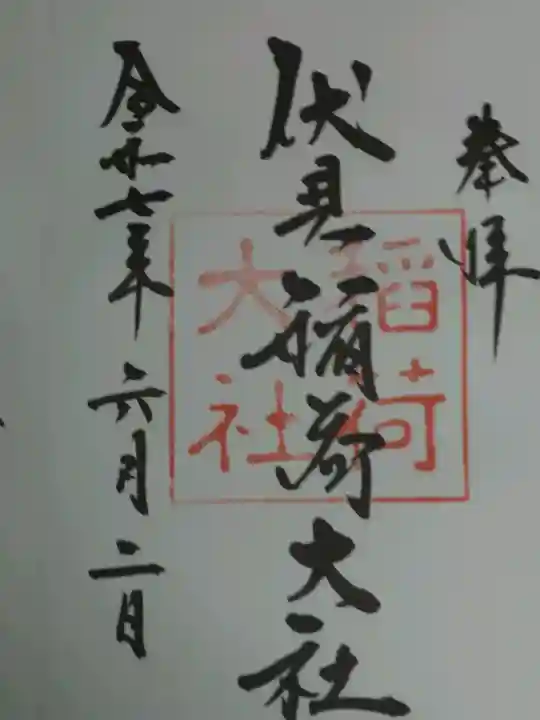 奉拝
伏見稲荷大社
稲荷
大社
令和七年六月二日